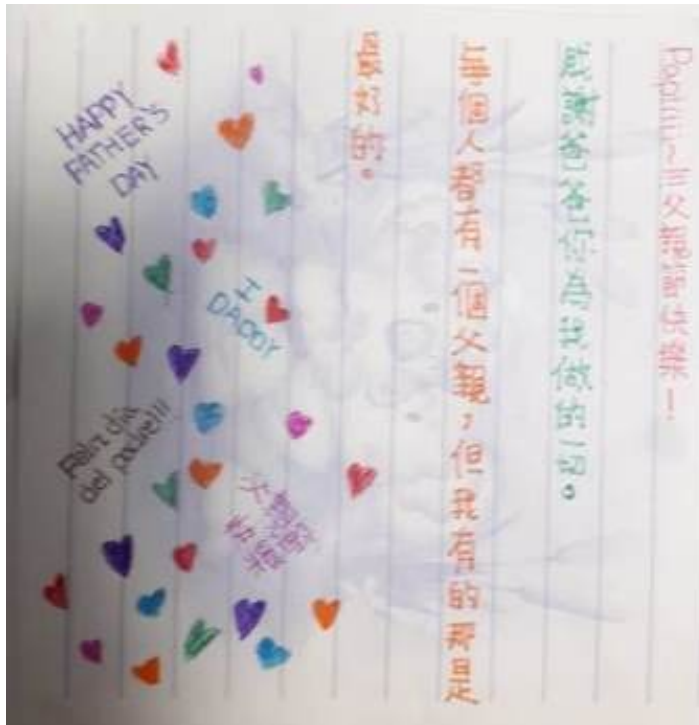 Papiiii~三父親節快樂!
感謝爸爸你為我做的一切。
每個人都有一個父親,但我有的那是
最好的。
HAPPY
FATHER'S
DAY
I
DADDY
Feliz día
del padre!!!
父親節
快樂